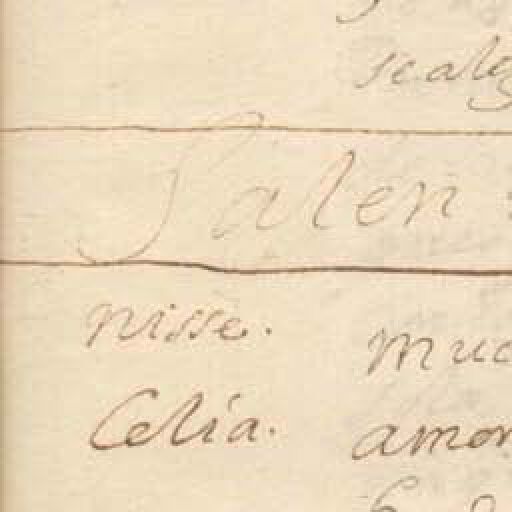 scalo
Salen :
nisse. muc
Celia. amor